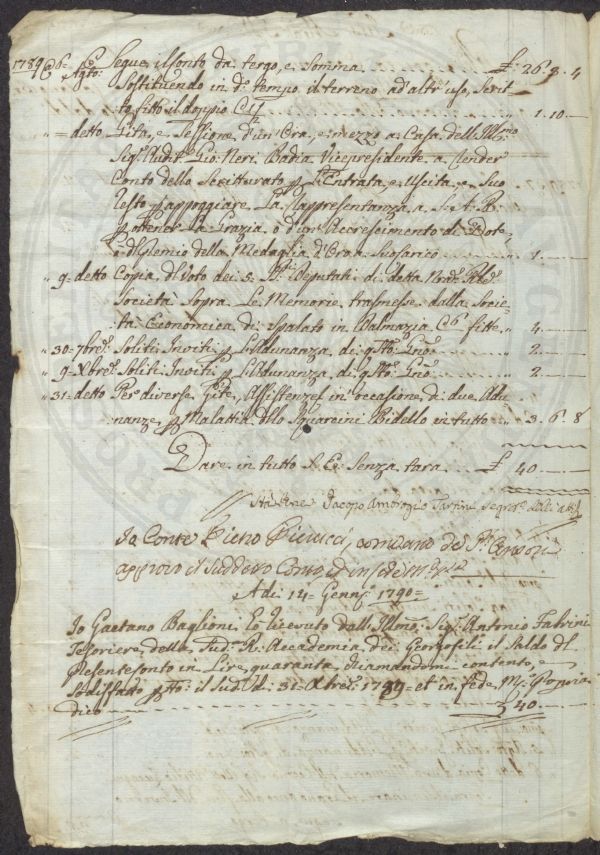 1789 @ 6= Agto: Segue il Conto da tergo, e Somma £ 26. 3. 4
Sostituendo in do. tempo il terreno ad altr'uso, Scrit=
to fitto il doppio C 1/2 " 1. 10 —
"= detto Gita, e Sessione d'un' Ora, e mezzo a Casa dell' Illmo
Sigr. Audit. Gio: Neri Badia Vicepresidente a render
Conto dello Scritturato p L'Entrata, e Uscita, e Suc
cesto p appoggiare La Rappresentanza a S. A. R.
p ottener La Grazia o d'un Accrescimento di Dote,
o d'l Premio della Medaglia d'Oro a Suo carico " 1. —
" 9= detto Copia d'l Voto dei 5. SSri. Deputati di detta
Società Sopra Le Memorie trasmesse dalla Socie=
ta Economica di Spalato in Dalmazia C 6 fitte " 4. —
" 30= 7bre: Soliti Inviti p L'Adunanza di qsto. Gno. " 2. —
" 9= Xbre: Soliti Inviti p L'Adunanza di qsto. Gno. " 2. —
" 31= detto Per diverse Gite, Assistenze in occasione di due Adu
nanze, p Malattia dello Squarcini Bidello in tutto " 3. 6. 8
Dare in tutto S. E: Senza tara £ 40 —
Jacopo Ambrogio Tartini Segrio. degli atti
Io Conte Piero Pierucci, uno dei SSri. Censori
approvo il Suddetto Conto, ed in fede Mo. ppria
Adi: 14= Genno: 1790=
Io Gaetano Baglioni ho ricevuto dall' Illmo: Sigr. Antonio Fabrini
Tesoriere della Sudta. Re. Accademia dei Georgofili il Saldo d'l
Presente Conto in Lire quaranta, chiamandomi contento, e
Sodisfatto p tto: il Sudo. dì 31= Xbre: 1789= et in fede Mo: Propria
dico £ 40 —